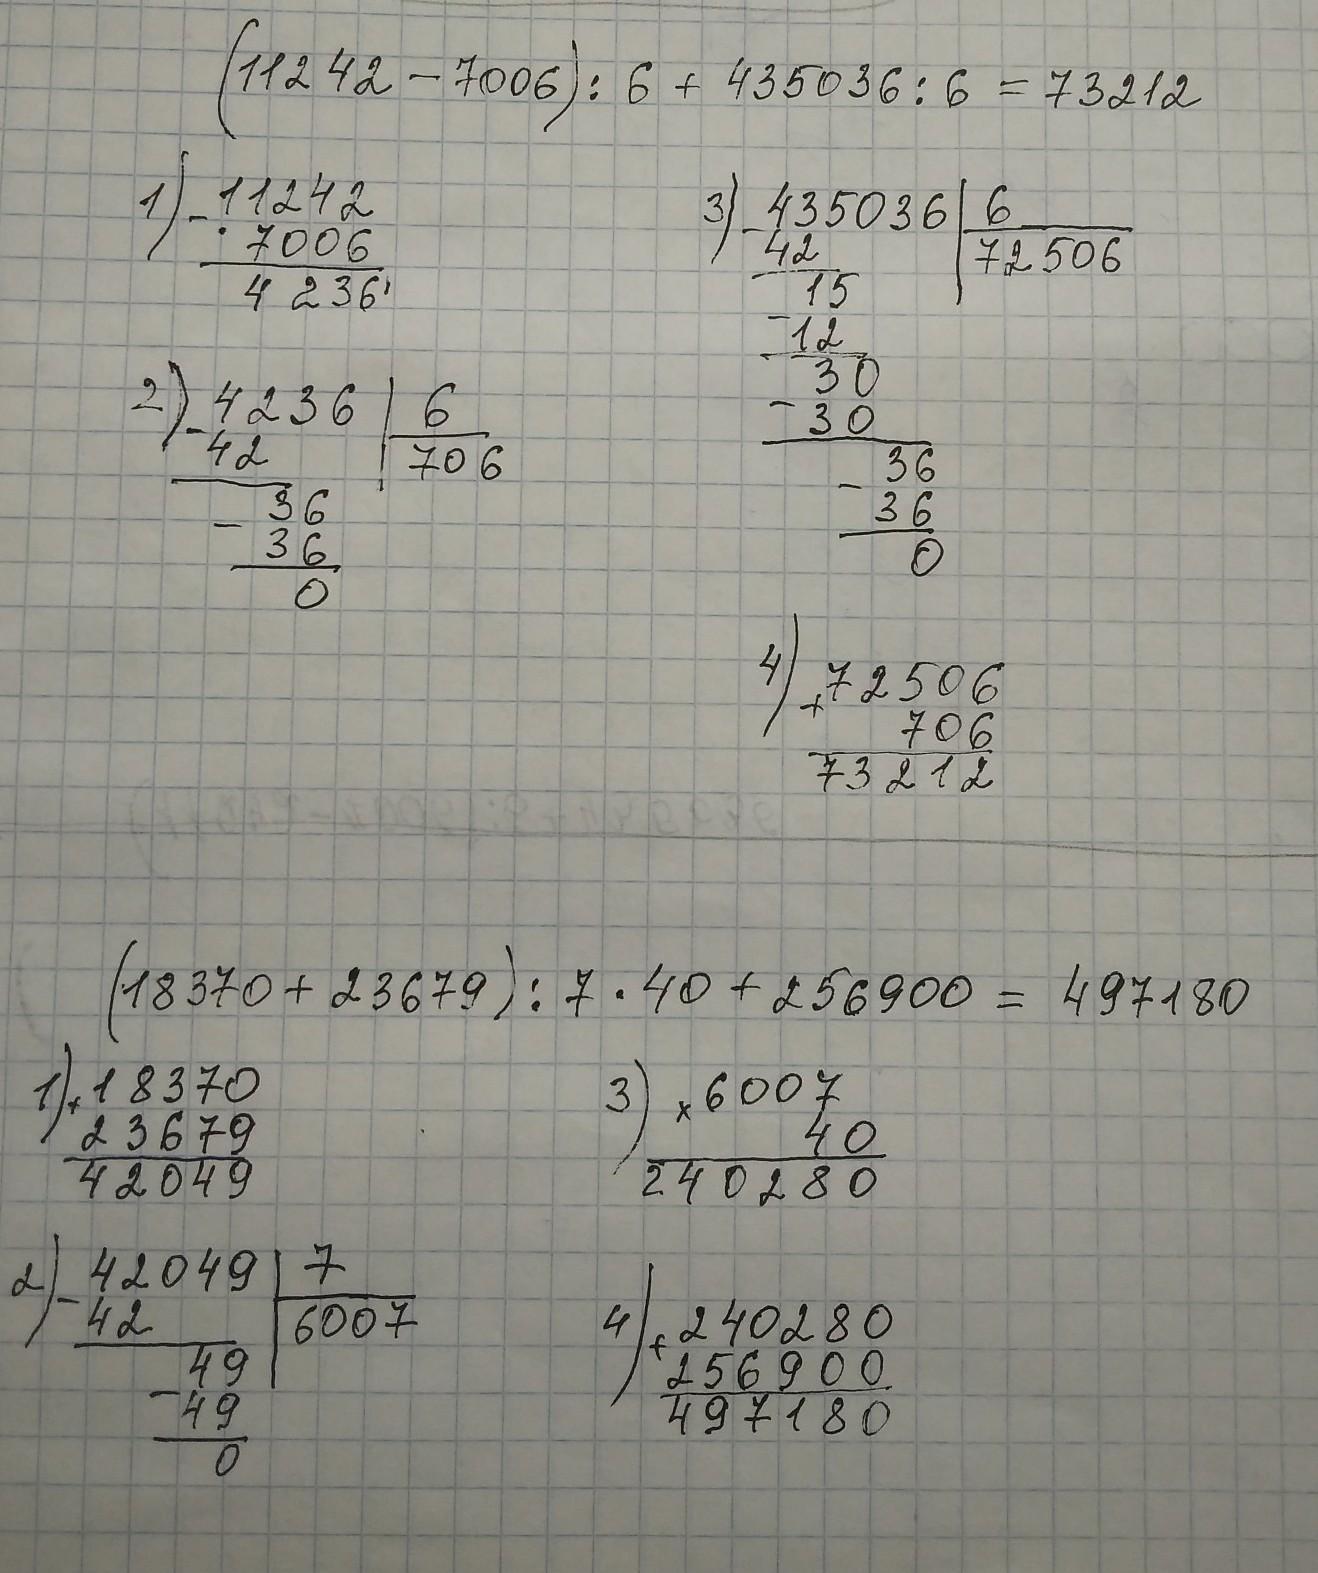 (11242 - 7006) : 6 + 435036 : 6 = 73212
1) - 11242
7006
4236
2) - 4236 | 6
42 | 706
- 36
36
0
3) - 435036 | 6
42 | 72506
15
- 12
30
- 30
36
- 36
0
4) + 72506
706
73212
(18370 + 23679) : 7 · 40 + 256900 = 497180
1) + 18370
23679
42049
2) - 42049 | 7
42 | 6007
49
- 49
0
3) × 6007
40
240280
4) + 240280
256900
497180